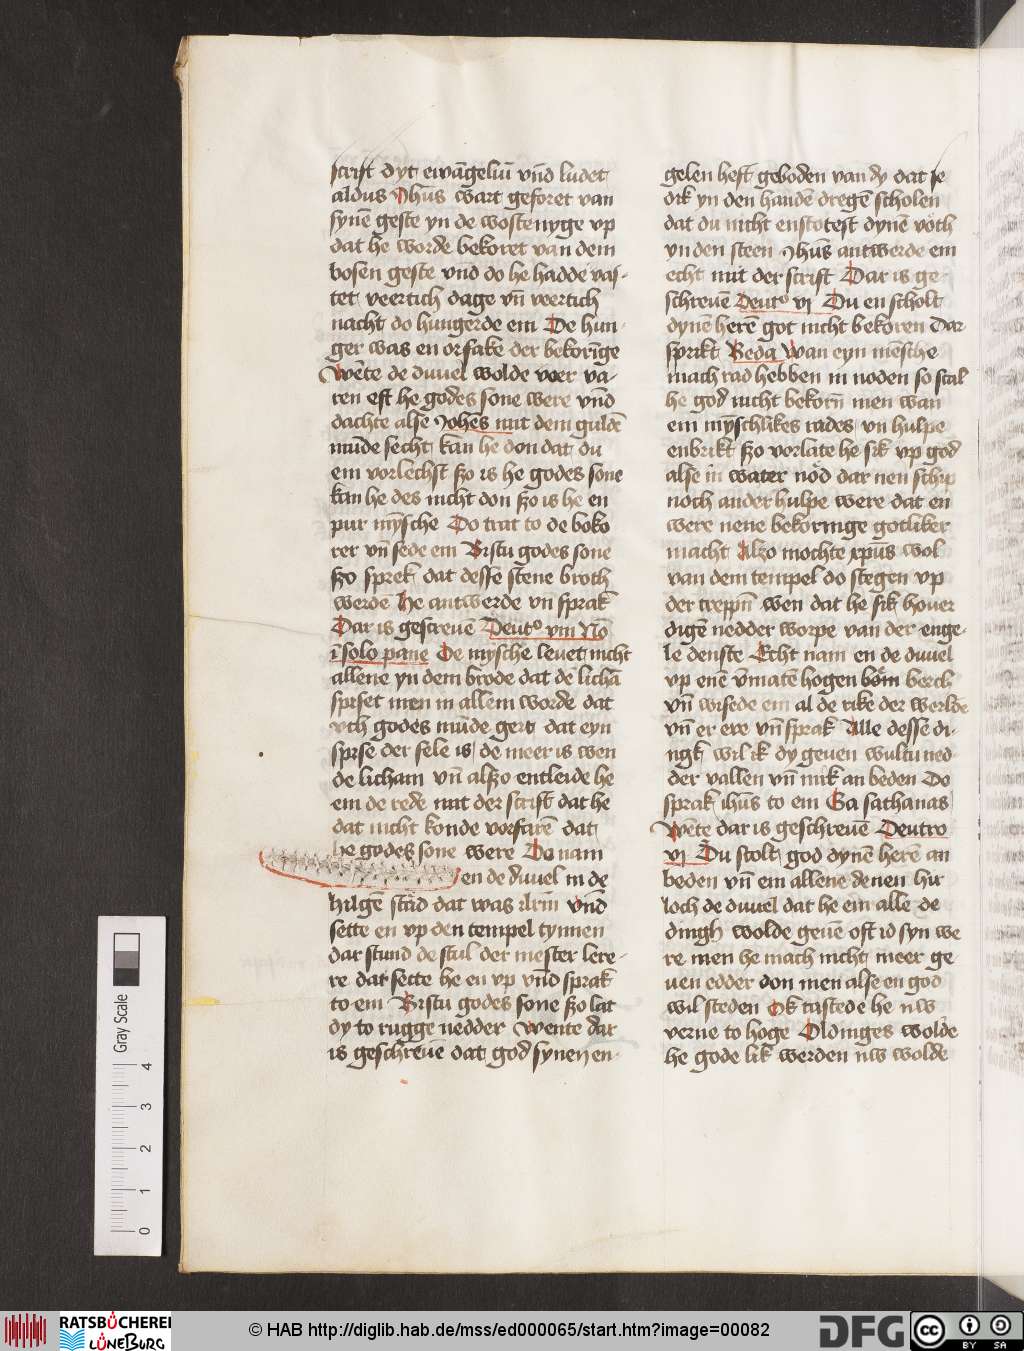 scrift dyt ewāgeliū vn̄d ludet
aldus Jhūs wart geforet van
synē geste yn de wostenyge vp
dat he worde bekoret van dem
bosen geste vnd do he hadde vas-
tet veertich dage vn̄ veertich
nacht do hungerde em De hun-
ger was en orsake der bekorīge
Wēte de duuel wolde voer va-
ren eft he godes sone were vn̄d
dachte alse Johēs mit dem guldē
mūde secht kan he don dat du
em vorlechst szo is he godes sone
kan he des nicht don szo is he en
pur mȳsche Do trat to de beko
rer vn̄ sede em Bistu godes sone
szo sprek dat desse stene broth
werdē He antwerde vn̄ sprak
Dar is gescreuē Deut° viii Nō
ī solo pane De mȳsche leuet nicht
allene yn dem brode dat de lichā
spiset men in allem worde dat
vth godes mūde geit dat eyn
spise der sele is de meer is wen
de licham vn̄ alszo entleide he
em de rede mit der scrift dat he
dat nicht konde vorfarē dat
he godes sone were Do nam
en de duuel in de
hilgē stād dat was ilrīm vn̄d
sette en vp den tempel tynnen
dar stund de stul der mester lere-
re dar sette he en vp vn̄d sprak
to em Bistu godes sone szo lat
dy to rugge nedder Wente dar
is geschreuē dat god synen en-
gelen heft geboden van dy dat se
dik yn den handē dregē scholen
dat du nicht enstotest dynē voth
yn den steen Jhūs antwerde em
echt mit der scrift Dar is ge
schreuē Deut° vi Du en scholt
dynē herē got nicht bekoren Dar
sprikt Beda Wan eyn mēsche
mach rad hebben in noden so schal
he god nicht bekorn̄ men wan
em mȳschlikes rades vn hulpe
enbrikt szo vorlate he sik vp god
alse in water nod dar nen schip
noch ander hulpe were dat en
were nene bekoringe gotliker
macht Alzo mochte xpūs wol
van dem tempel do stegen vp
der treppn̄ wen dat he sik houer
digē nedder worpe van der enge-
le denste Echt nam en de duuel
vp enē vmatē hogen berch
vn̄ wisede em al de rike der werlde
vn̄ er ere vn̄ sprak Alle desse di-
ngk wil ik dy geuen wultu ned-
der vallen vn̄ mik an beden Do
sprak ihūs to em Ga sathanas
Wēte dar is geschreuē Deutro
vi Du scolt god dynē herē an
beden vn̄ em allene denen hir
loch de duuel dat he em alle de
dingh wolde geuē oft id syn we
re men he mach nicht meer ge
uen edder don men alse en god
wil steden Ok tastede he niw
verne to hoge Oldinges wolde
he gode lik werden niw wolde
Gray Scale
4
3
2
1
0
RATSBÜCHEREI
LÜNEBURG
© HAB http://diglib.hab.de/mss/ed000065/start.htm?image=00082
DFG
cc
BY SA